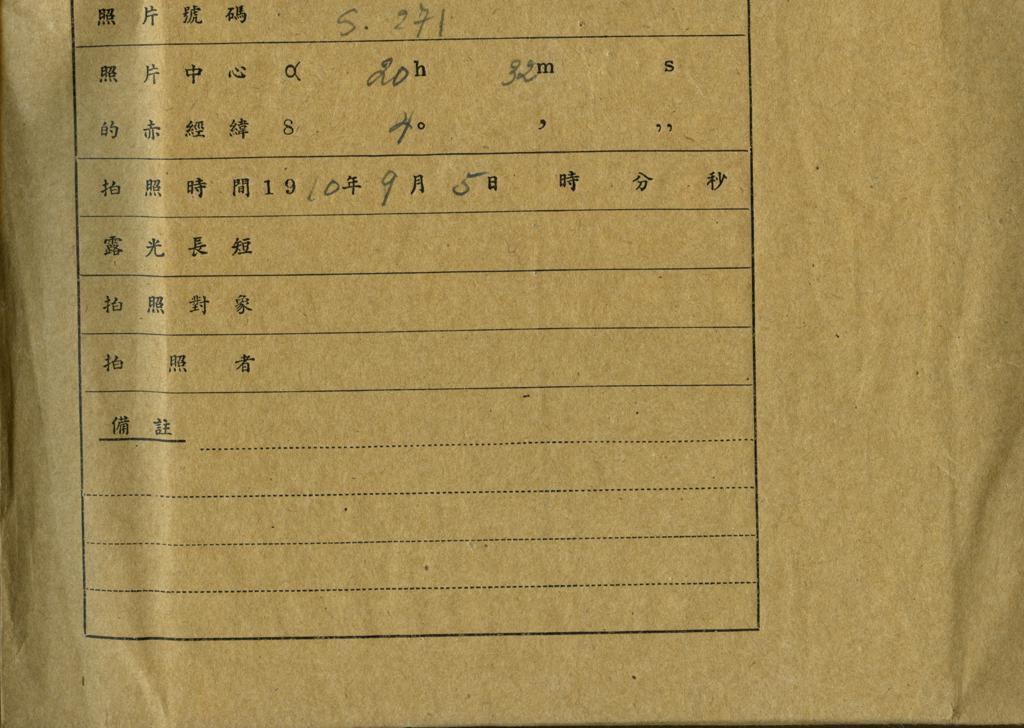 照片號碼 S. 271
照片中心 α 20h 32m s
的赤經緯 δ 4° ’ ’’
拍照時間 1910年 9月 5日 時 分 秒
露光長短
拍照對象
拍照者
備註